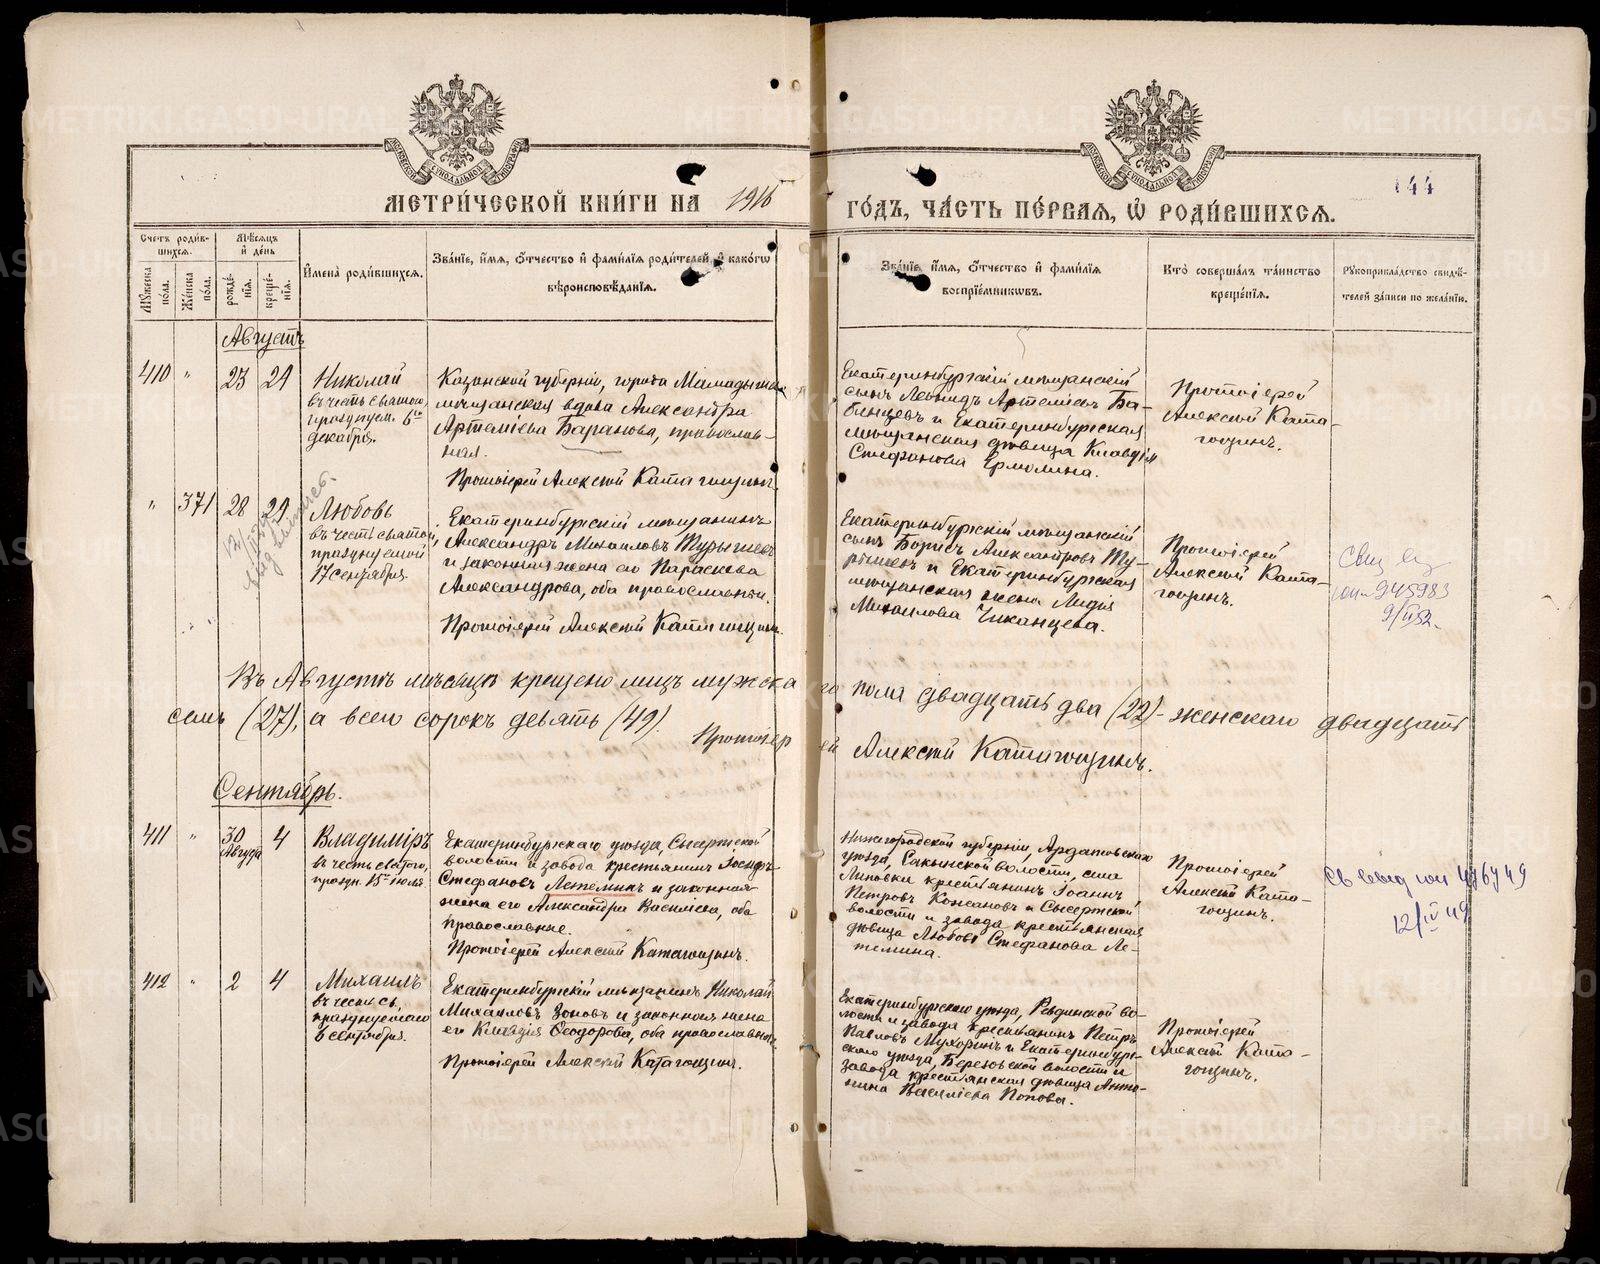 144
МЕТРИ́ЧЕСКОЙ КНИ́ГИ НА 1916 ГО́ДЪ, ЧА́СТЬ ПЕ́РВАЯ, Ѡ҆ РОДИ́ВШИХСЯ.
Счетъ роди́вшихся.
Му́жеска по́ла.
Же́нска по́ла.
Мѣ́сяцъ и҆ де́нь
рожде́нія.
креще́нія.
И҆мена̀ роди́вшихся.
Зва́ніе, и҆́мя, ѻ҆́тчество и҆ фами́лія роди́телей, и҆ како́гѡ
вѣроисповѣ́данія.
Зва́ніе, и҆́мя, ѻ҆́тчество и҆ фами́лія
воспріе́мниковъ.
Кто̀ соверша́лъ та́инство
креще́нія.
Рукоприкла́дство свидѣ́-
телей за́писи по жела́нію.
Августъ
410 " 23 29
Николай
въ честь святого,
празднуем. 6го
декабря.
Казанской губерніи, города Мамадыша
мѣщанская вдова Александра
Артеміева Баранова, православ-
ная.
Протоіерей Алексій Катагощинъ.
Екатеринбургскій мѣщанскій
сынъ Леонидъ Артеміевъ Ба-
бинцевъ и Екатеринбургская
мѣщанская дѣвица Клавдія
Стефанова Ермолина.
Протоіерей
Алексій Ката-
гощинъ.
" 371 28 29
Любовь
въ честь святой,
празднуемой
17 сентября.
Екатеринбургскій мѣщанинъ
Александръ Михаиловъ Турышевъ
и законная жена его Параскева
Александрова, оба православныи.
Протоіерей Алексій Катагощинъ.
Екатеринбургскій мѣщанскій
сынъ Борисъ Александровъ Ту-
рышевъ и Екатеринбургская
мѣщанская жена Лидія
Михаилова Чиканцева.
Протоіерей
Алексій Ката-
гощинъ.
945983
9/II 52.
Въ Августѣ мѣсяцѣ крещено лицъ мужскаго пола двадцать два (22) - женскаго двадцать
семь (27), а всего сорокъ девять (49).
Протоіерей Алексій Катагощинъ.
Сентябрь.
411 " 30 Августа 4
Владиміръ
въ честь святого,
праздн. 15го іюля
Екатеринбургскаго уѣзда, Сысертской
волости и завода крестьянинъ
Стефановъ Летеминъ и законная
жена его Александра Василіева, оба
православные.
Протоіерей Алексій Катагощинъ.
Нижегородской губерніи, Ардатовскаго
уѣзда, Саконской волости, села
Липовки крестьянинъ Іоаннъ
Петровъ Кожановъ и Сысертской
волости и завода крестьянская
дѣвица Любовь Стефанова Ле-
темина.
Протоіерей
Алексій Ката-
гощинъ.
12/IV 49
412 " 2 4
Михаилъ
въ честь св.
празднуемаго
6 сентября.
Екатеринбургскій мѣщанинъ Николай
Михаиловъ Зоновъ и законная жена
его Клавдія Ѳеодорова, оба православные.
Протоіерей Алексій Катагощинъ.
Екатеринбургскаго уѣзда, Ревдинской во-
лости и завода крестьянинъ Петръ
Павловъ Мухоринъ и Екатеринбург-
скаго уѣзда, Березовской волости и
завода крестьянская дѣвица Анто-
нина Василіева Попова.
Протоіерей
Алексій Ката-
гощинъ.
METRIKI.GASO-URAL.RU